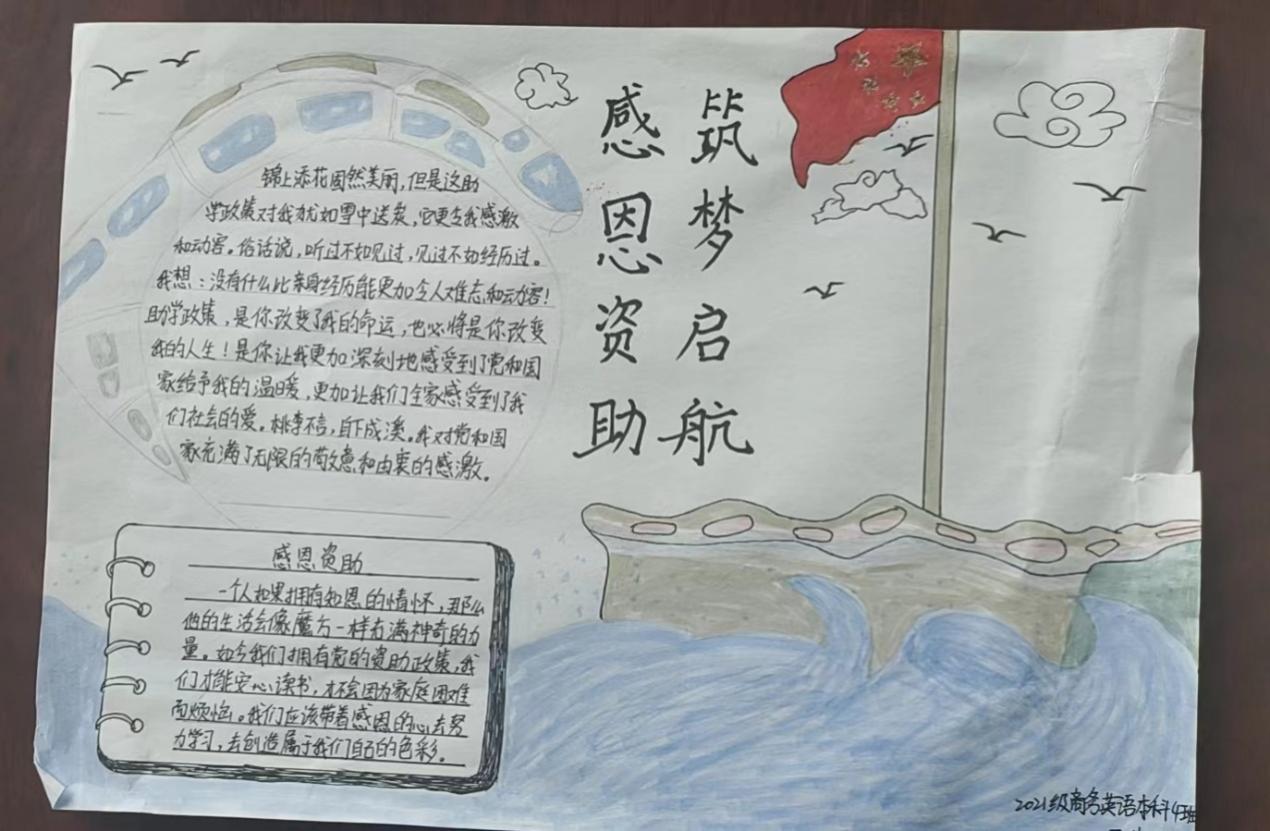 感恩资助
筑梦启航
锦上添花固然美丽，但是这助
学政策对我犹如雪中送炭，它更令我感激
和动容。俗话说，听过不如见过，见过不如经历过。
我想：没有什么比亲身经历能更加令人难忘和动容！
助学政策，是你改变了我的命运，也必将是你改变
我的人生！是你让我更加深刻地感受到了党和国
家给予我的温暖，更加让我们全家感受到了我
们社会的爱。桃李不言，自下成溪。我对党和国
家充满了无限的敬意和由衷的感激。
感恩资助
一个人如果拥有知恩的情怀，那么
他的生活会像魔方一样布满神奇的力
量。如今我们拥有党的资助政策，我
们才能安心读书，才不会因为家庭困难
而烦恼。我们应该带着感恩的心去努
力学习，去创造属于我们自己的色彩。
2021级商务英语本科4班